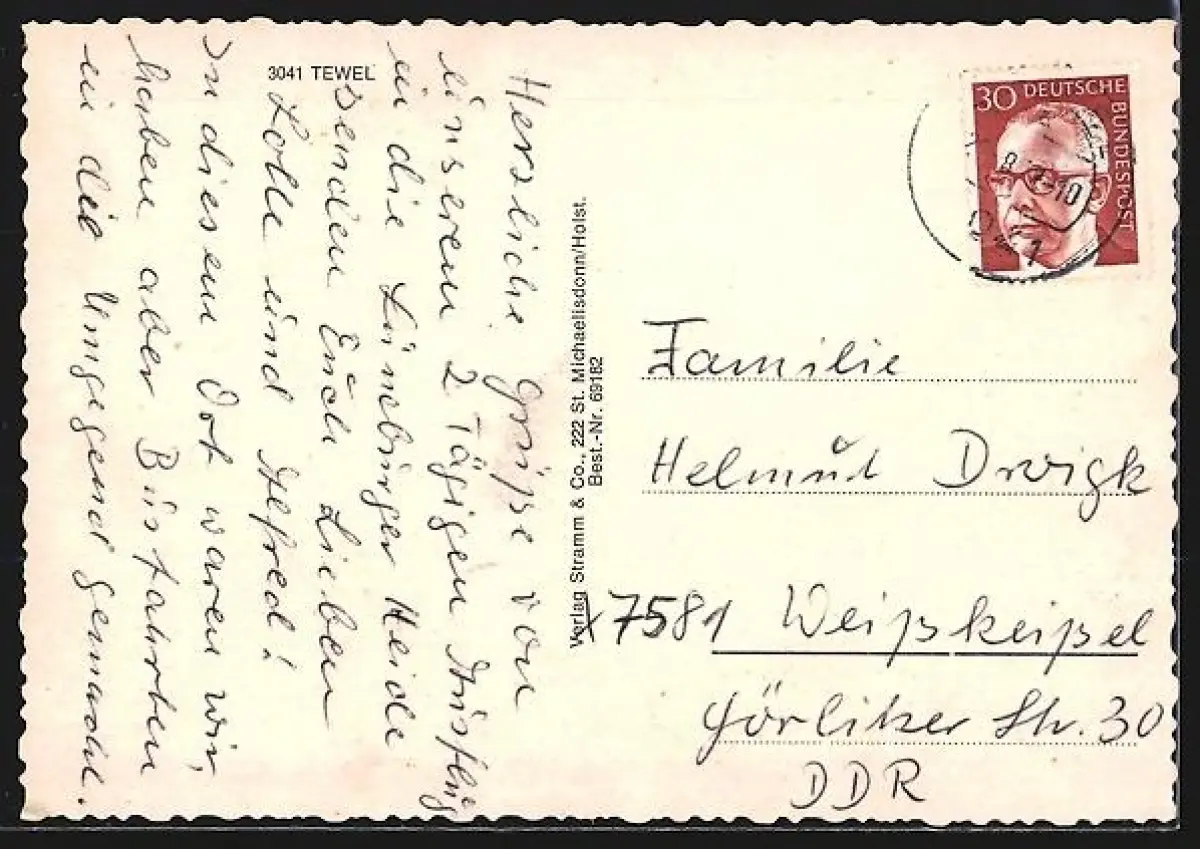 3041 TEWEL
Herzliche Grüße von
unserem 2 Tägigen Ausflug
in die Lüneburger Heide
senden Euch Lieben
Lolle und Alfred!
In diesem Ort waren wir,
haben aber Busfahrten
in die Umgegend gemacht.
Verlag Stramm & Co., 222 St. Michaelisdonn/Holst.
Best.-Nr. 69182
30 DEUTSCHE BUNDESPOST
Familie
Helmut Drwigk
X7581 Weißkeißel
Görlitzer Str. 30
DDR